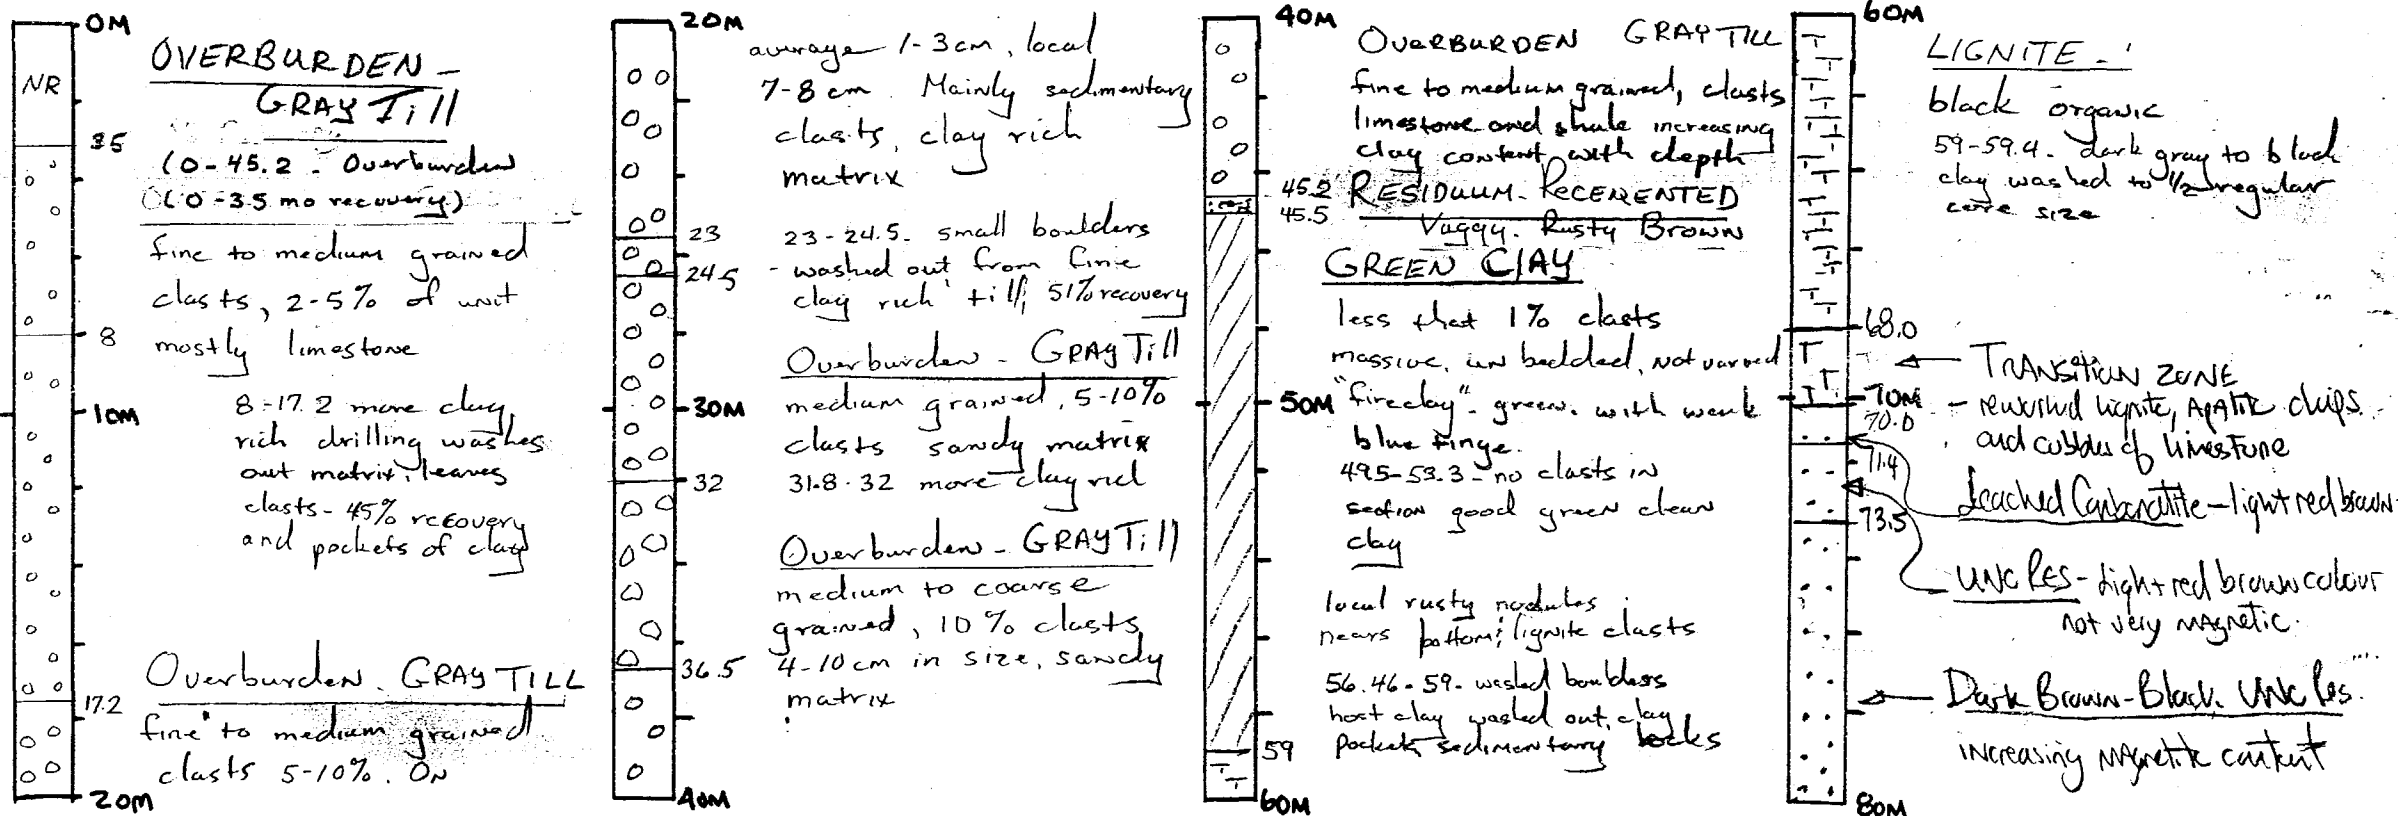 0M
NR
3.5
8
10M
17.2
20M
OVERBURDEN -
GRAY Till
(0-45.2 - Overburden
(0-3.5 no recovery)
fine to medium grained
clasts, 2-5% of unit
mostly limestone
8-17.2 more clay
rich drilling washes
out matrix, leaves
clasts - 45% recovery
and pockets of clay
Overburden - GRAY TILL
fine to medium grained
clasts 5-10%. On
20M
23
24.5
30M
32
36.5
40M
average 1-3cm, local
7-8 cm. Mainly sedimentary
clasts, clay rich
matrix
23-24.5- small boulders
- washed out from fine
clay rich till, 51% recovery
Overburden - GRAY Till
medium grained, 5-10%
clasts sandy matrix
31.8-32 more clay rich
Overburden - GRAY Till
medium to coarse
grained, 10% clasts
4-10cm in size, sandy
matrix
40M
45.2
45.5
50M
59
60M
OVERBURDEN GRAY TILL
fine to medium grained, clasts
limestone and shale increasing
clay content with depth
RESIDUUM- RECEMENTED
Vuggy. Rusty Brown
GREEN ClAY
less that 1% clasts
massive, un bedded, not varved
"fireclay"- green. with weak
blue tinge.
49.5-53.3 - no clasts in
section good green clean
clay
local rusty nodules
nears bottom; lignite clasts
56.46-59- washed boulders
host clay washed out, clay
pockets, sedimentary rocks
60M
68.0
70M
70.0
71.4
73.5
80M
LIGNITE -
black organic
59-59.4- dark gray to black
clay washed to 1/2 regular
core size
TRANSITION ZONE
- reworked lignite, Apatite chips
and cobbles of limestone
Leached Carbonatite - light red brown
UNC RES - Light red brown colour
not very magnetic.
Dark Brown-Black. UNC Res.
increasing magnetite content